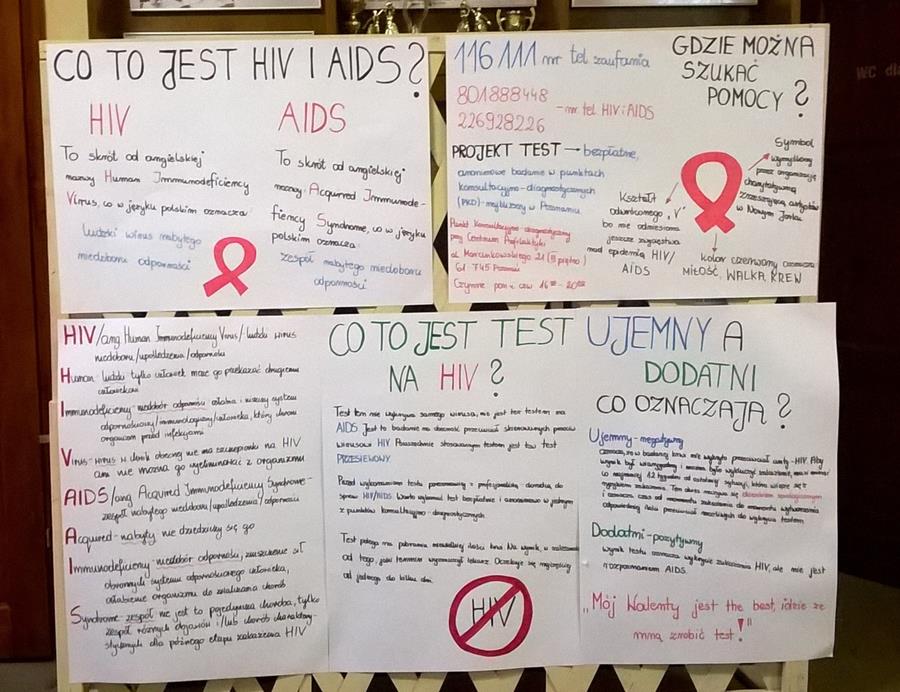 CO TO JEST HIV I AIDS?
HIV
To skrót od angielskiej
nazwy Human Immunodeficiency
Virus, co w języku polskim oznacza
ludzki wirus nabytego
niedoboru odporności
AIDS
To skrót od angielskiej
nazwy: Acquired Immunode-
fiency Syndrome, co w języku
polskim oznacza:
zespół nabytego niedoboru
odporności
116 111 nr tel zaufania
801888448
226928226
- nr tel. HIV i AIDS
PROJEKT TEST → bezpłatne,
anonimowe badanie w punktach
konsultacyjno-diagnostycznych
(PKD)-najbliższy w Poznaniu
Punkt Konsultacyjno diagnostyczny
przy Centrum Profilaktyki
ul Marcinkowskiego 21 (III piętro)
61-745 Poznań
Czynne pon i czw 16⁰⁰-20⁰⁰
GDZIE MOŻNA
SZUKAĆ
POMOCY ?
Symbol
wymyślony
przez organizację
charytatywną
zrzeszającą artystów
w Nowym Jorku
Kształt
odwróconego „V"
bo nie odniesiono
jeszcze zwycięstwa
nad epidemią HIV/
AIDS
kolor czerwony oznacza
MIŁOŚĆ, WALKA, KREW
HIV/ang Human Immunodeficiency Virus/ ludzki wirus
niedoboru/upośledzenia/odporności
Human- ludzki tylko człowiek może go przekazać drugiemu
człowiekowi
Immunodeficiency- niedobór odporności
odpornościowy/immunologiczny/człowieka, który chroni
organizm przed infekcjami
Virus-wirus
ani nie można go wyeliminować z organizmu
AIDS/ang Acquired Immunodeficiency Syndrome-
zespół nabytego niedoboru/upośledzenia/odporności
Acquired-nabyty nie dziedziczy się go
Immunodeficiency-niedobór odporności, zniszczenie sił
obronnych systemu odpornościowego człowieka,
osłabienie organizmu do zwalczania chorób
Syndrome-zespół nie jest to pojedyncza choroba, tylko
zespół różnych objawów i/lub chorób charaktery-
stycznych dla późnego etapu zakażenia HIV
CO TO JEST TEST
NA HIV ?
Test ten nie wykrywa samego wirusa, nie jest też testem na
AIDS Jest to badanie na obecność przeciwciał skierowanych przeciw
wirusowi HIV Powszechnie stosowanym testem jest tzw test
PRZESIEWOWY.
Przed wykonaniem testu porozmawiaj z profesjonalnym doradcą do
spraw HIV/AIDS Warto wykonać test bezpłatnie i anonimowo w jednym
z punktów konsultacyjno-diagnostycznych
Test polega na pobraniu niewielkiej ilości krwi Na wynik, w zależności
od tego, jaki
od jednego do kilku dni.
HIV
UJEMNY A
DODATNI
CO OZNACZAJĄ ?
Ujemny-negatywny
oznacza, że w badanej krwi nie wykryto przeciwciał anty-HIV. Aby
wynik był wiarygodny
co najmniej 12 tygodni od ostatniej sytuacji, która wiąże się z
ryzykiem zakażenia Ten okres nazywa się okienkiem serologicznym
i oznacza czas od momentu zakażenia do momentu wytworzenia
odpowiedniej ilości przeciwciał możliwych do wykrycia testem
Dodatni-pozytywny
wynik testu oznacza wykrycie zakażenia HIV, ale nie jest
rozpoznaniem AIDS.
„Mój Walenty jest the best, idzie ze
mną zrobić test!"